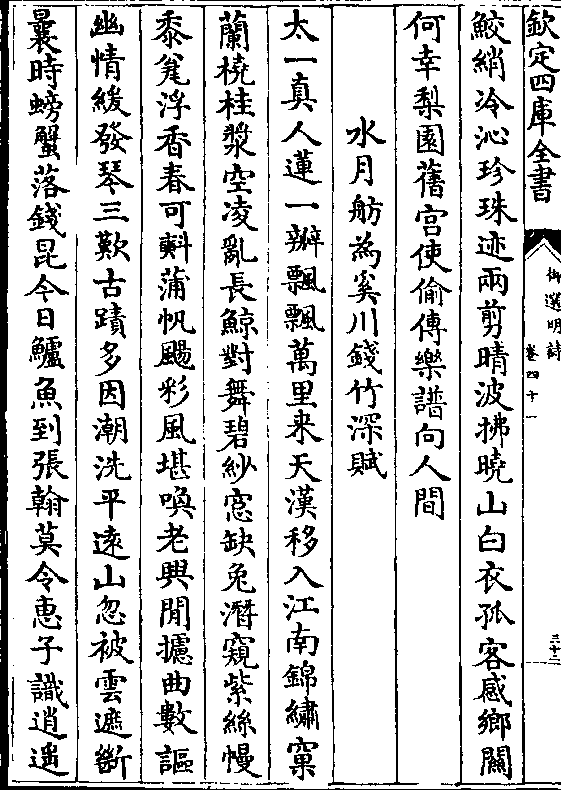 欽定四庫全書
御選明詩
卷四十一
三十二
鮫綃冷沁珍珠迹兩剪晴波拂曉山白衣孤客感鄉關
何幸梨園舊宮使偷傳樂譜向人間
水月舫為奚川錢竹深賦
太一真人蓮一瓣飄飄萬里来天漢移入江南錦繡窠
蘭橈桂漿空凌亂長鯨對舞碧紗窓缺兔潛窺紫絲幔
黍瓮浮香春可㪺蒲帆颺彩風堪喚老興閒攄曲數謳
幽情緩發琴三歎古蹟多因潮洗平遠山忽被雲遮斷
曩時螃蟹落錢昆今日鱸魚到張翰莫令惠子識逍遥